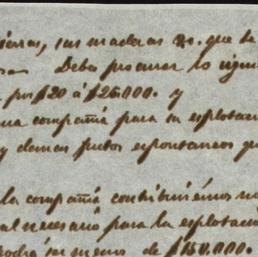 tierras, sus maderas &c. que la
Debes procurar lo
por $20 á $25.000. y
una compañia para la explotacion
y demas frutos espontaneos que
la compañia contribuiremos
necesario para la explotacion
podrá ser menos de $150.000.